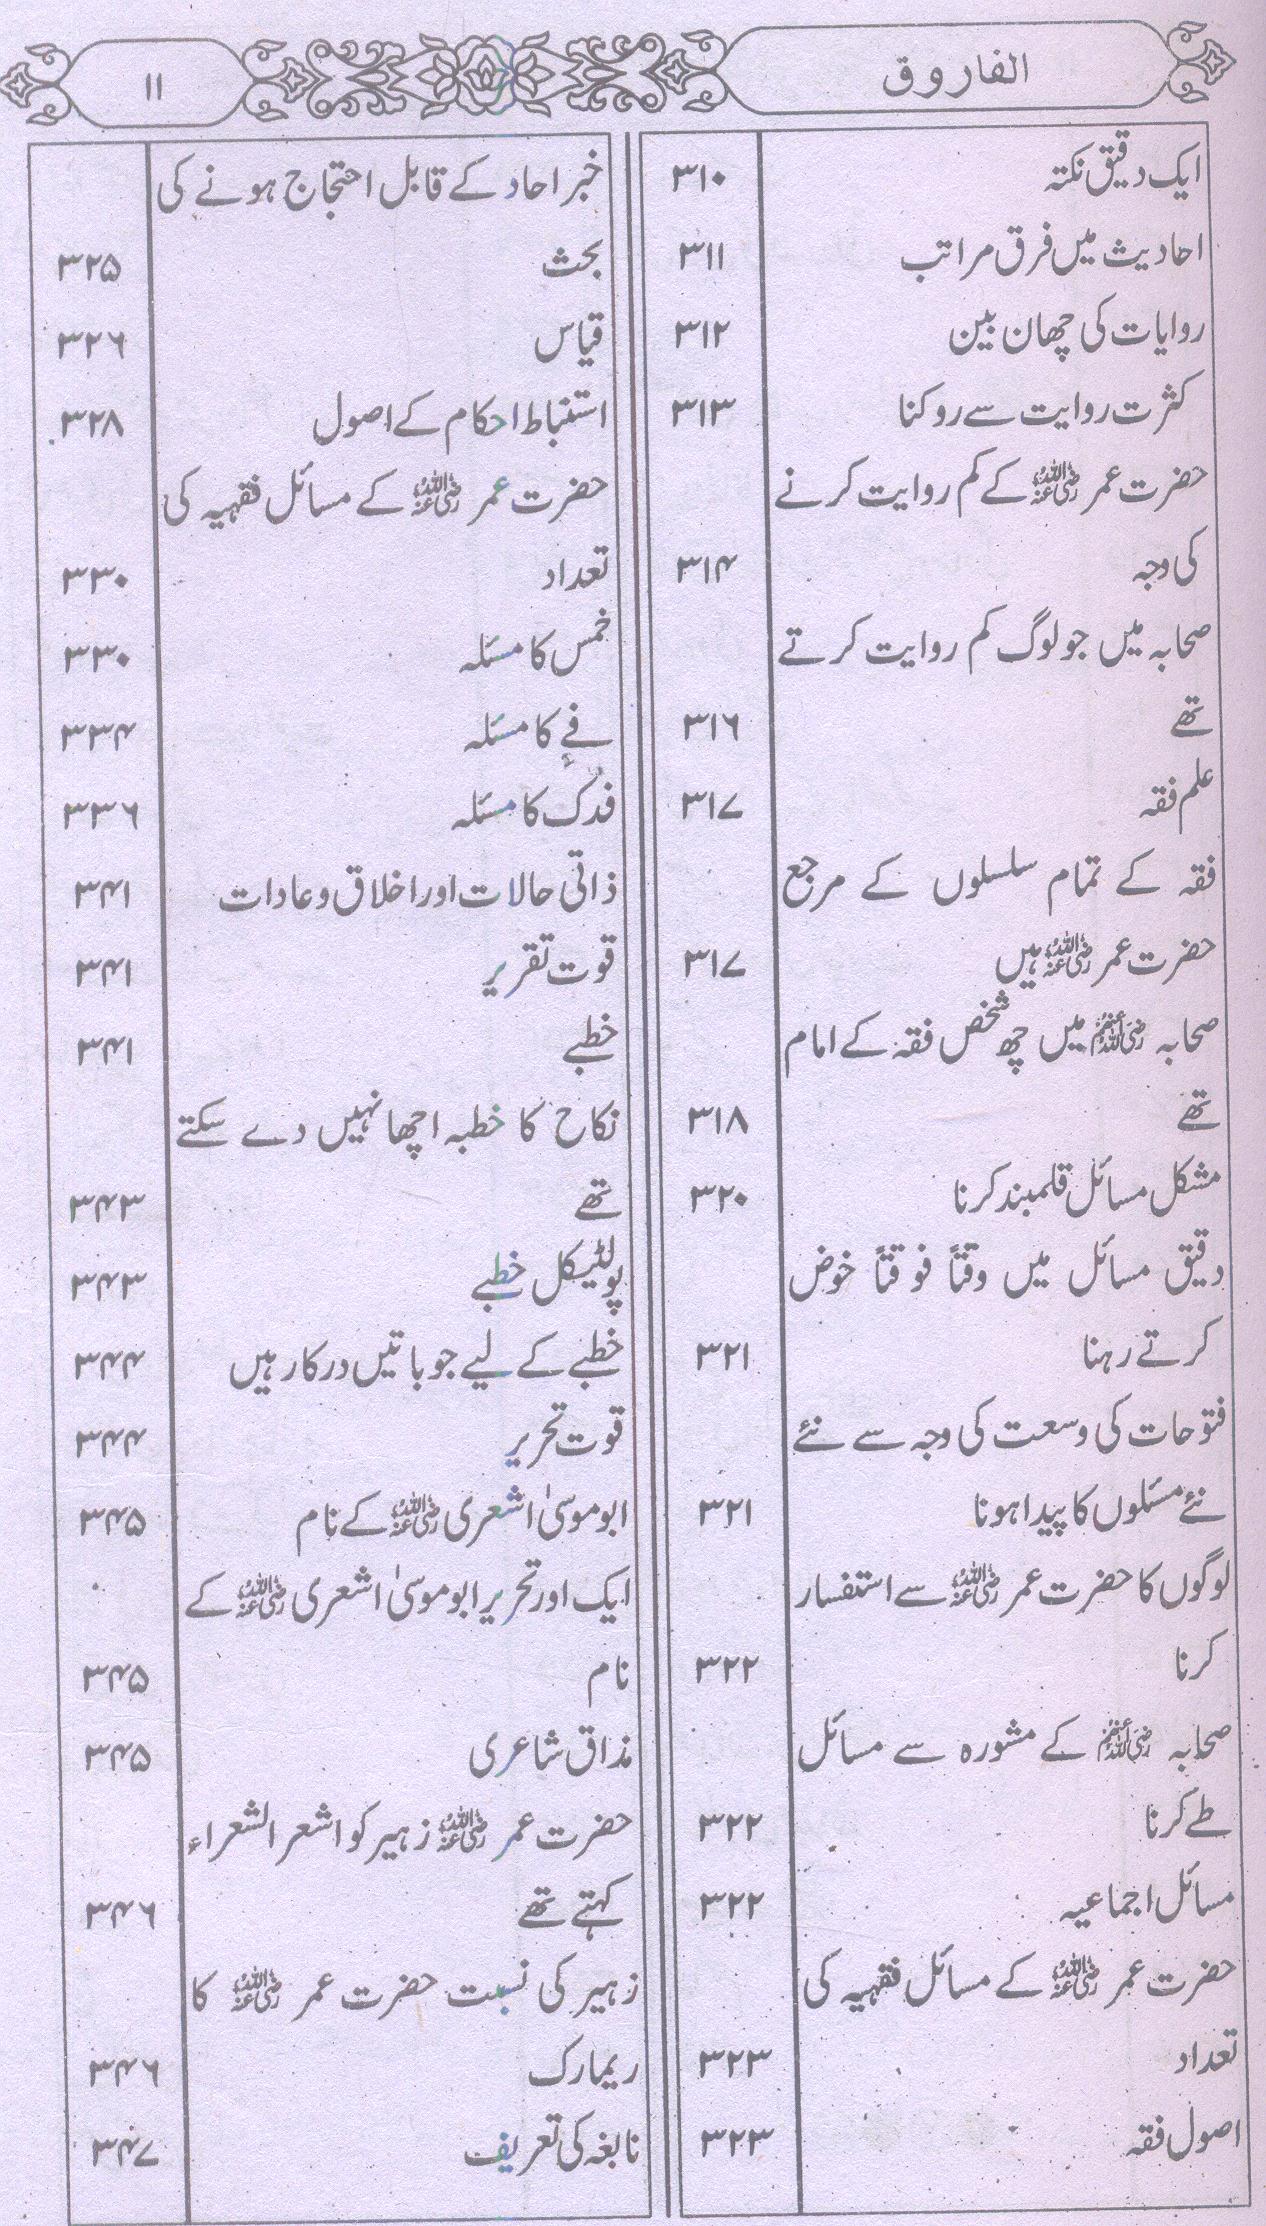 الفاروق
۱۱
ایک دقیق نکتہ ۳۱۰
احادیث میں فرق مراتب ۳۱۱
روایات کی چھان بین ۳۱۲
کثرت روایت سے روکنا ۳۱۳
حضرت عمر رضی اللہ عنہ کے کم روایت کرنے
کی وجہ ۳۱۴
صحابہ میں جو لوگ کم روایت کرتے
تھے ۳۱۶
علم فقہ ۳۱۷
فقہ کے تمام سلسلوں کے مرجع
حضرت عمر رضی اللہ عنہ ہیں ۳۱۷
صحابہ رضی اللہ عنہم میں چھ شخص فقہ کے امام
تھے ۳۱۸
مشکل مسائل قلمبند کرنا ۳۲۰
دقیق مسائل میں وقتاً فوقتاً خوض
کرتے رہنا ۳۲۱
فتوحات کی وسعت کی وجہ سے نئے
نئے مسئلوں کا پیدا ہونا ۳۲۱
لوگوں کا حضرت عمر رضی اللہ عنہ سے استفسار
کرنا ۳۲۲
صحابہ رضی اللہ عنہم کے مشورہ سے مسائل
طے کرنا ۳۲۲
مسائل اجماعیہ ۳۲۲
حضرت عمر رضی اللہ عنہ کے مسائل فقہیہ کی
تعداد ۳۲۳
اصول فقہ ۳۲۳
خبر احاد کے قابل احتجاج ہونے کی
بحث ۳۲۵
قیاس ۳۲۶
استنباط احکام کے اصول ۳۲۸
حضرت عمر رضی اللہ عنہ کے مسائل فقہیہ کی
تعداد ۳۳۰
خمس کا مسئلہ ۳۳۰
فے کا مسئلہ ۳۳۴
فدک کا مسئلہ ۳۳۶
ذاتی حالات اور اخلاق و عادات ۳۴۱
قوت تقریر ۳۴۱
خطبے ۳۴۱
نکاح کا خطبہ اچھا نہیں دے سکتے
تھے ۳۴۳
پولٹیکل خطبے ۳۴۳
خطبے کے لیے جو باتیں درکار ہیں ۳۴۴
قوت تحریر ۳۴۴
ابوموسیٰ اشعری رضی اللہ عنہ کے نام ۳۴۵
ایک اور تحریر ابوموسیٰ اشعری رضی اللہ عنہ کے
نام ۳۴۵
مذاق شاعری ۳۴۵
حضرت عمر رضی اللہ عنہ زہیر کو اشعر الشعراء
کہتے تھے ۳۴۶
زہیر کی نسبت حضرت عمر رضی اللہ عنہ کا
ریمارک ۳۴۶
نابغہ کی تعریف ۳۴۷